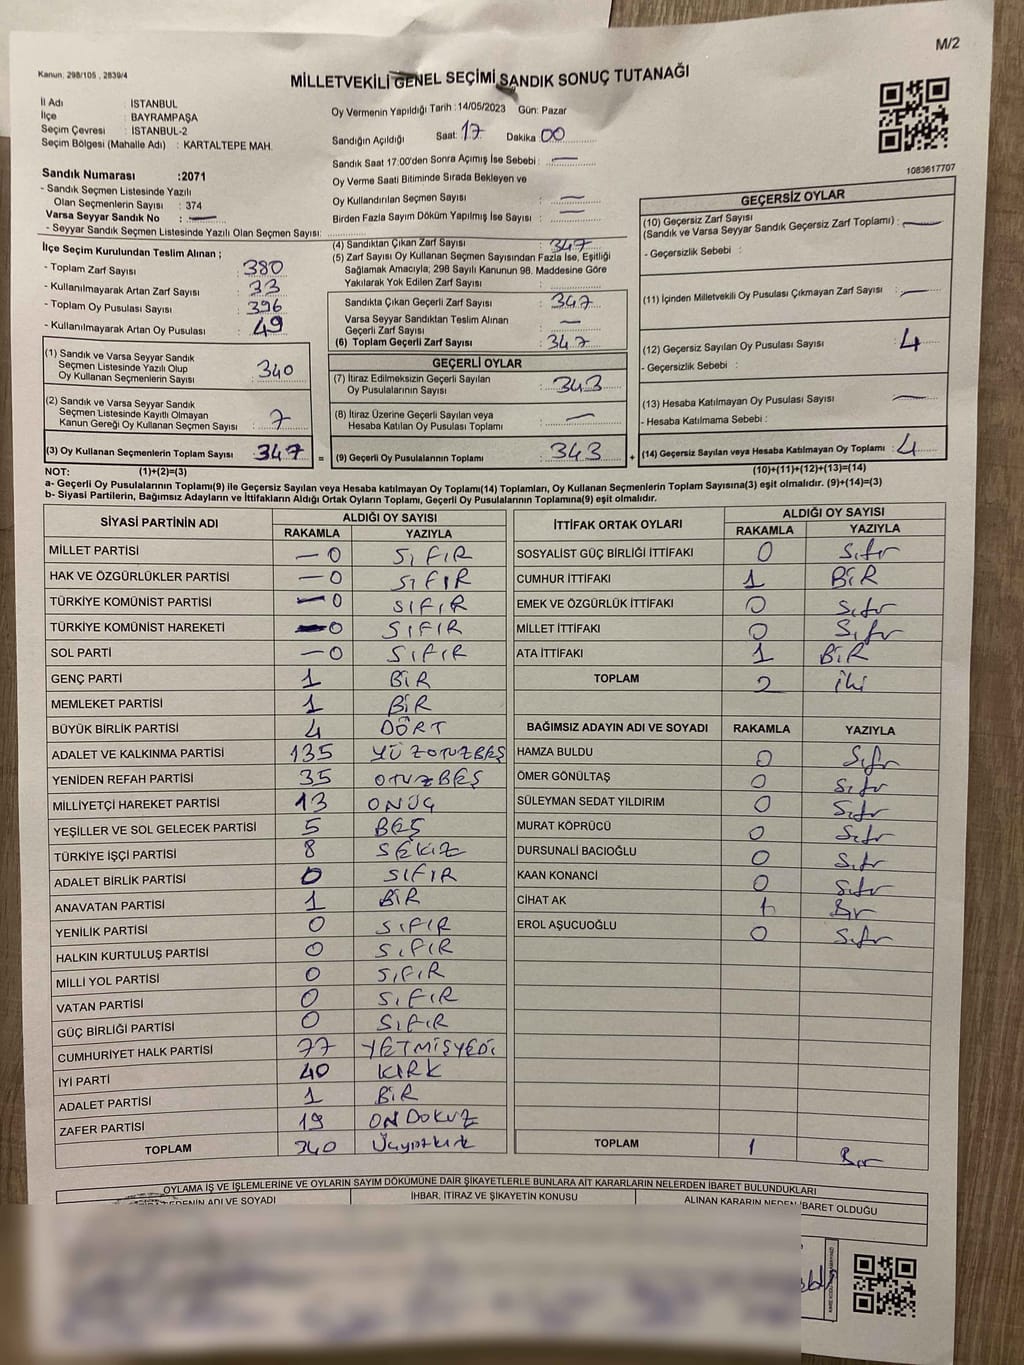 M/2
Kanun: 298/105 , 2839/4
MİLLETVEKİLİ GENEL SEÇİMİ SANDIK SONUÇ TUTANAĞI
İl Adı : İSTANBUL
İlçe : BAYRAMPAŞA
Seçim Çevresi : İSTANBUL-2
Seçim Bölgesi (Mahalle Adı) : KARTALTEPE MAH.
Sandık Numarası :2071
- Sandık Seçmen Listesinde Yazılı
Olan Seçmenlerin Sayısı : 374
Varsa Seyyar Sandık No : —
- Seyyar Sandık Seçmen Listesinde Yazılı Olan Seçmen Sayısı:
Oy Vermenin Yapıldığı Tarih :14/05/2023 Gün: Pazar
Sandığın Açıldığı Saat: 17 Dakika 00
Sandık Saat 17.00'den Sonra Açımış İse Sebebi : —
Oy Verme Saati Bitiminde Sırada Bekleyen ve
Oy Kullandırılan Seçmen Sayısı : —
Birden Fazla Sayım Döküm Yapılmış İse Sayısı : —
1083617707
İlçe Seçim Kurulundan Teslim Alınan ;
- Toplam Zarf Sayısı : 380
- Kullanılmayarak Artan Zarf Sayısı : 33
- Toplam Oy Pusulası Sayısı : 396
- Kullanılmayarak Artan Oy Pusulası : 49
(1) Sandık ve Varsa Seyyar Sandık
Seçmen Listesinde Yazılı Olup
Oy Kullanan Seçmenlerin Sayısı : 340
(2) Sandık ve Varsa Seyyar Sandık
Seçmen Listesinde Kayıtlı Olmayan
Kanun Gereği Oy Kullanan Seçmen Sayısı : 7
(3) Oy Kullanan Seçmenlerin Toplam Sayısı : 347
(4) Sandıktan Çıkan Zarf Sayısı : 347
(5) Zarf Sayısı Oy Kullanan Seçmen Sayısından Fazla İse, Eşitliği
Sağlamak Amacıyla; 298 Sayılı Kanunun 98. Maddesine Göre
Yakılarak Yok Edilen Zarf Sayısı :
Sandıkta Çıkan Geçerli Zarf Sayısı : 347
Varsa Seyyar Sandıktan Teslim Alınan
Geçerli Zarf Sayısı : —
(6) Toplam Geçerli Zarf Sayısı : 347
GEÇERLİ OYLAR
(7) İtiraz Edilmeksizin Geçerli Sayılan
Oy Pusulalarının Sayısı : 343
(8) İtiraz Üzerine Geçerli Sayılan veya
Hesaba Katılan Oy Pusulası Toplamı : —
= (9) Geçerli Oy Pusulalarının Toplamı : 343
GEÇERSİZ OYLAR
(10) Geçersiz Zarf Sayısı
(Sandık ve Varsa Seyyar Sandık Geçersiz Zarf Toplamı) : —
- Geçersizlik Sebebi :
(11) İçinden Milletvekili Oy Pusulası Çıkmayan Zarf Sayısı : —
(12) Geçersiz Sayılan Oy Pusulası Sayısı : 4
- Geçersizlik Sebebi :
(13) Hesaba Katılmayan Oy Pusulası Sayısı : —
- Hesaba Katılmama Sebebi :
+ (14) Geçersiz Sayılan veya Hesaba Katılmayan Oy Toplamı : 4
NOT: (1)+(2)=(3) (10)+(11)+(12)+(13)=(14)
a- Geçerli Oy Pusulalarının Toplamı(9) ile Geçersiz Sayılan veya Hesaba katılmayan Oy Toplamı(14) Toplamları, Oy Kullanan Seçmenlerin Toplam Sayısına(3) eşit olmalıdır. (9)+(14)=(3)
b- Siyasi Partilerin, Bağımsız Adayların ve İttifakların Aldığı Ortak Oyların Toplamı, Geçerli Oy Pusulalarının Toplamına(9) eşit olmalıdır.
SİYASİ PARTİNİN ADI ALDIĞI OY SAYISI
RAKAMLA YAZIYLA
MİLLET PARTİSİ — 0 SIFIR
HAK VE ÖZGÜRLÜKLER PARTİSİ — 0 SIFIR
TÜRKİYE KOMÜNİST PARTİSİ — 0 SIFIR
TÜRKİYE KOMÜNİST HAREKETİ — 0 SIFIR
SOL PARTİ — 0 SIFIR
GENÇ PARTİ 1 BİR
MEMLEKET PARTİSİ 1 BİR
BÜYÜK BİRLİK PARTİSİ 4 DÖRT
ADALET VE KALKINMA PARTİSİ 135 YÜZOTUZBEŞ
YENİDEN REFAH PARTİSİ 35 OTUZBEŞ
MİLLİYETÇİ HAREKET PARTİSİ 13 ONÜÇ
YEŞİLLER VE SOL GELECEK PARTİSİ 5 BEŞ
TÜRKİYE İŞÇİ PARTİSİ 8 SEKİZ
ADALET BİRLİK PARTİSİ 0 SIFIR
ANAVATAN PARTİSİ 1 BİR
YENİLİK PARTİSİ 0 SIFIR
HALKIN KURTULUŞ PARTİSİ 0 SIFIR
MİLLİ YOL PARTİSİ 0 SIFIR
VATAN PARTİSİ 0 SIFIR
GÜÇ BİRLİĞİ PARTİSİ 0 SIFIR
CUMHURİYET HALK PARTİSİ 77 YETMİŞYEDİ
İYİ PARTİ 40 KIRK
ADALET PARTİSİ 1 BİR
ZAFER PARTİSİ 19 ONDOKUZ
TOPLAM 340 Üçyüzkırk
İTTİFAK ORTAK OYLARI ALDIĞI OY SAYISI
RAKAMLA YAZIYLA
SOSYALİST GÜÇ BİRLİĞİ İTTİFAKI 0 Sıfır
CUMHUR İTTİFAKI 1 BİR
EMEK VE ÖZGÜRLÜK İTTİFAKI 0 Sıfır
MİLLET İTTİFAKI 0 Sıfır
ATA İTTİFAKI 1 BİR
TOPLAM 2 iki
BAĞIMSIZ ADAYIN ADI VE SOYADI RAKAMLA YAZIYLA
HAMZA BULDU 0 Sıfır
ÖMER GÖNÜLTAŞ 0 Sıfır
SÜLEYMAN SEDAT YILDIRIM 0 Sıfır
MURAT KÖPRÜCÜ 0 Sıfır
DURSUNALİ BACIOĞLU 0 Sıfır
KAAN KONANCİ 0 Sıfır
CİHAT AK 1 Bir
EROL AŞUCUOĞLU 0 Sıfır
TOPLAM 1 Bir
OYLAMA İŞ VE İŞLEMLERİNE VE OYLARIN SAYIM DÖKÜMÜNE DAİR ŞİKAYETLERLE BUNLARA AİT KARARLARIN NELERDEN İBARET BULUNDUKLARI
EDENİN ADI VE SOYADI İHBAR, İTİRAZ VE ŞİKAYETİN KONUSU ALINAN KARARIN NEDEN İBARET OLDUĞU